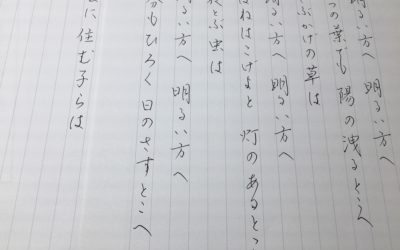 るい方へ 明るい方へ
つの葉でも 陽の洩るとこへ
ぶかげの草は
るい方へ 明るい方へ
はねはこげよと 灯のあると
とぶ虫は
るい方へ 明るい方へ
分もひろく 日のさすとこへ
に 住む子らは